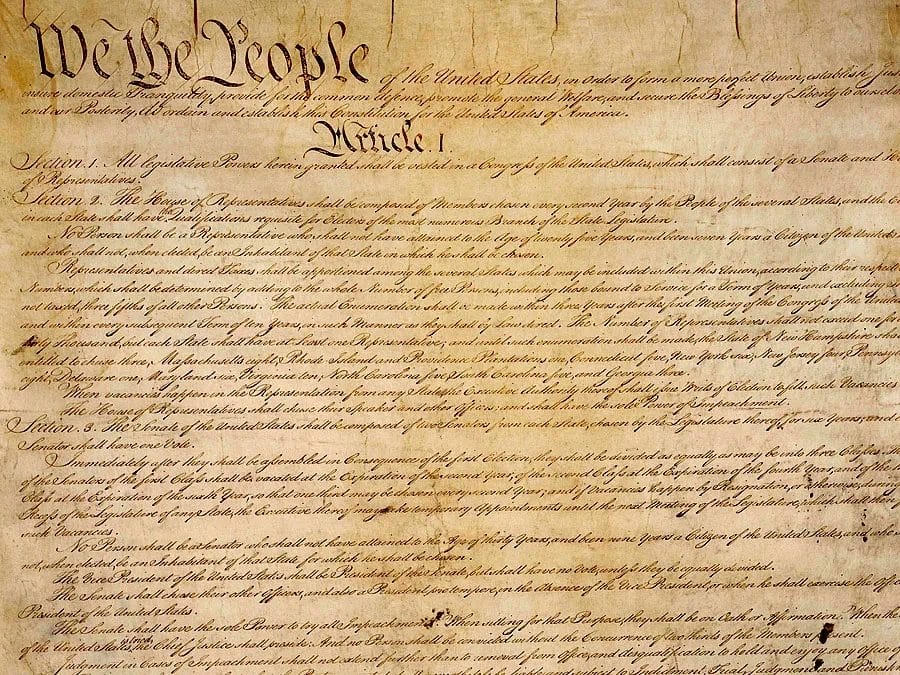 We the People of the United States, in Order to form a more perfect Union, establish Jus
insure domestic Tranquility, provide for the common defence, promote the general Welfare, and secure the Blessings of Liberty to oursel
and our Posterity, do ordain and establish this Constitution for the United States of America.
Article. I.
Section. 1. All legislative Powers herein granted shall be vested in a Congress of the United States, which shall consist of a Senate and Ho
of Representatives.
Section. 2. The House of Representatives shall be composed of Members chosen every second Year by the People of the several States, and the E
in each State shall have the Qualifications requisite for Electors of the most numerous Branch of the State Legislature.
No Person shall be a Representative who shall not have attained to the Age of twenty five Years, and been seven Years a Citizen of the United
and who shall not, when elected, be an Inhabitant of that State in which he shall be chosen.
Representatives and direct Taxes shall be apportioned among the several States which may be included within this Union, according to their respect
Numbers, which shall be determined by adding to the whole Number of free Persons, including those bound to Service for a Term of Years, and excluding
not taxed, three fifths of all other Persons. The actual Enumeration shall be made within three Years after the first Meeting of the Congress of the United
and within every subsequent Term of ten Years, in such Manner as they shall by Law direct. The Number of Representatives shall not exceed one for
thirty Thousand, but each State shall have at Least one Representative; and until such enumeration shall be made, the State of New Hampshire sha
entitled to chuse three, Massachusetts eight, Rhode Island and Providence Plantations one, Connecticut five, New York six, New Jersey four, Pennsyl
eight, Delaware one, Maryland six, Virginia ten, North Carolina five, South Carolina five, and Georgia three.
When vacancies happen in the Representation from any State, the Executive Authority thereof shall issue Writs of Election to fill such Vacancies
The House of Representatives shall chuse their Speaker and other Officers; and shall have the sole Power of Impeachment.
Section. 3. The Senate of the United States shall be composed of two Senators from each State, chosen by the Legislature thereof, for six Years; and
Senator shall have one Vote.
Immediately after they shall be assembled in Consequence of the first Election, they shall be divided as equally as may be into three Classes. The
of the Senators of the first Class shall be vacated at the Expiration of the second Year, of the second Class at the Expiration of the fourth Year, and of the
Class at the Expiration of the sixth Year, so that one third may be chosen every second Year; and if Vacancies happen by Resignation, or otherwise, during
Recess of the Legislature of any State, the Executive thereof may make temporary Appointments until the next Meeting of the Legislature, which shall then
such Vacancies.
No Person shall be a Senator who shall not have attained to the Age of thirty Years, and been nine Years a Citizen of the United States, and who
not, when elected, be an Inhabitant of that State for which he shall be chosen.
The Vice President of the United States shall be President of the Senate, but shall have no Vote, unless they be equally divided.
The Senate shall chuse their other Officers, and also a President pro tempore, in the Absence of the Vice President, or when he shall exercise the Office
President of the United States.
The Senate shall have the sole Power to try all Impeachments. When sitting for that Purpose, they shall be on Oath or Affirmation. When the
of the United States is tried, the Chief Justice shall preside: And no Person shall be convicted without the Concurrence of two thirds of the Members present.
Judgment in Cases of Impeachment shall not extend further than to removal from Office, and disqualification to hold and enjoy any Office of